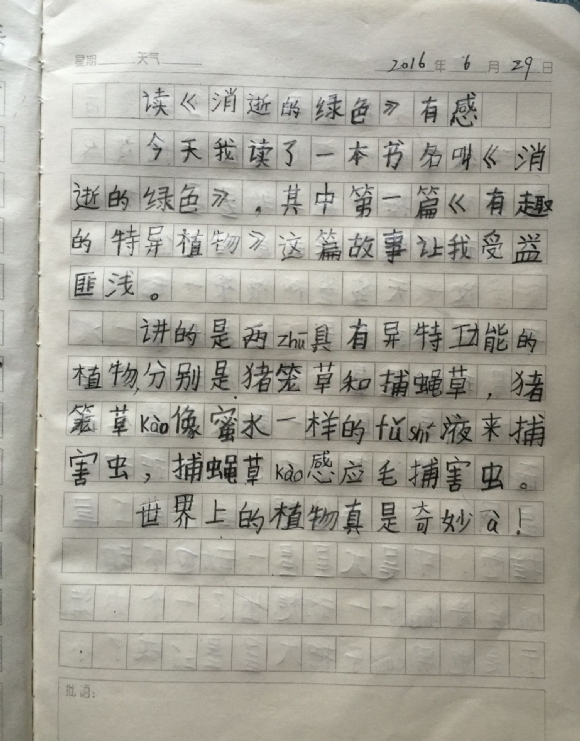 星期 天气 2016 年 6 月 29 日
读《消逝的绿色》有感
今天我读了一本书名叫《消
逝的绿色》,其中第一篇《有趣
的特异植物》这篇故事让我受益
匪浅。
讲的是两zhū具有异特功能的
植物,分别是猪笼草和捕蝇草,猪
笼草kào像蜜水一样的fǔ shí液来捕
害虫,捕蝇草kào感应毛捕害虫。
世界上的植物真是奇妙à!
批语: